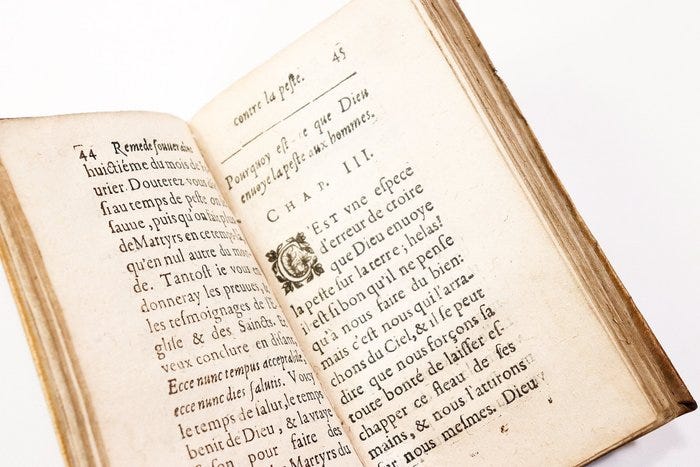 44 Remede souuerain
huictiéme du mois de
urier. Douterez vous
si au temps de peste on
sauue, puis qu'on
de Martyrs en ce temps
qu'en nul autre du mon-
de. Tantost ie vous en
donneray les preuues,
les tesmoignages de l'E-
glise & des Saincts. Et
veux conclure en disant,
Ecce nunc tempus acceptabile,
ecce nunc dies salutis. Voicy
le temps de salut, le temps
benit de Dieu, & la vraye
saison pour faire des
Martyrs du
contre la peste. 45
Pourquoy est-ce que Dieu
enuoye la peste aux hommes.
CHAP. III.
C'EST vne espece
d'erreur de croire
que Dieu enuoye
la peste sur la terre; helas!
il est si bon qu'il ne pense
qu'à nous faire du bien:
mais c'est nous qui l'arra-
chons du Ciel, & il se peut
dire que nous forçons sa
toute bonté de laisser es-
chapper ce fleau de ses
mains, & nous l'attirons
sur nous mesmes. Dieu